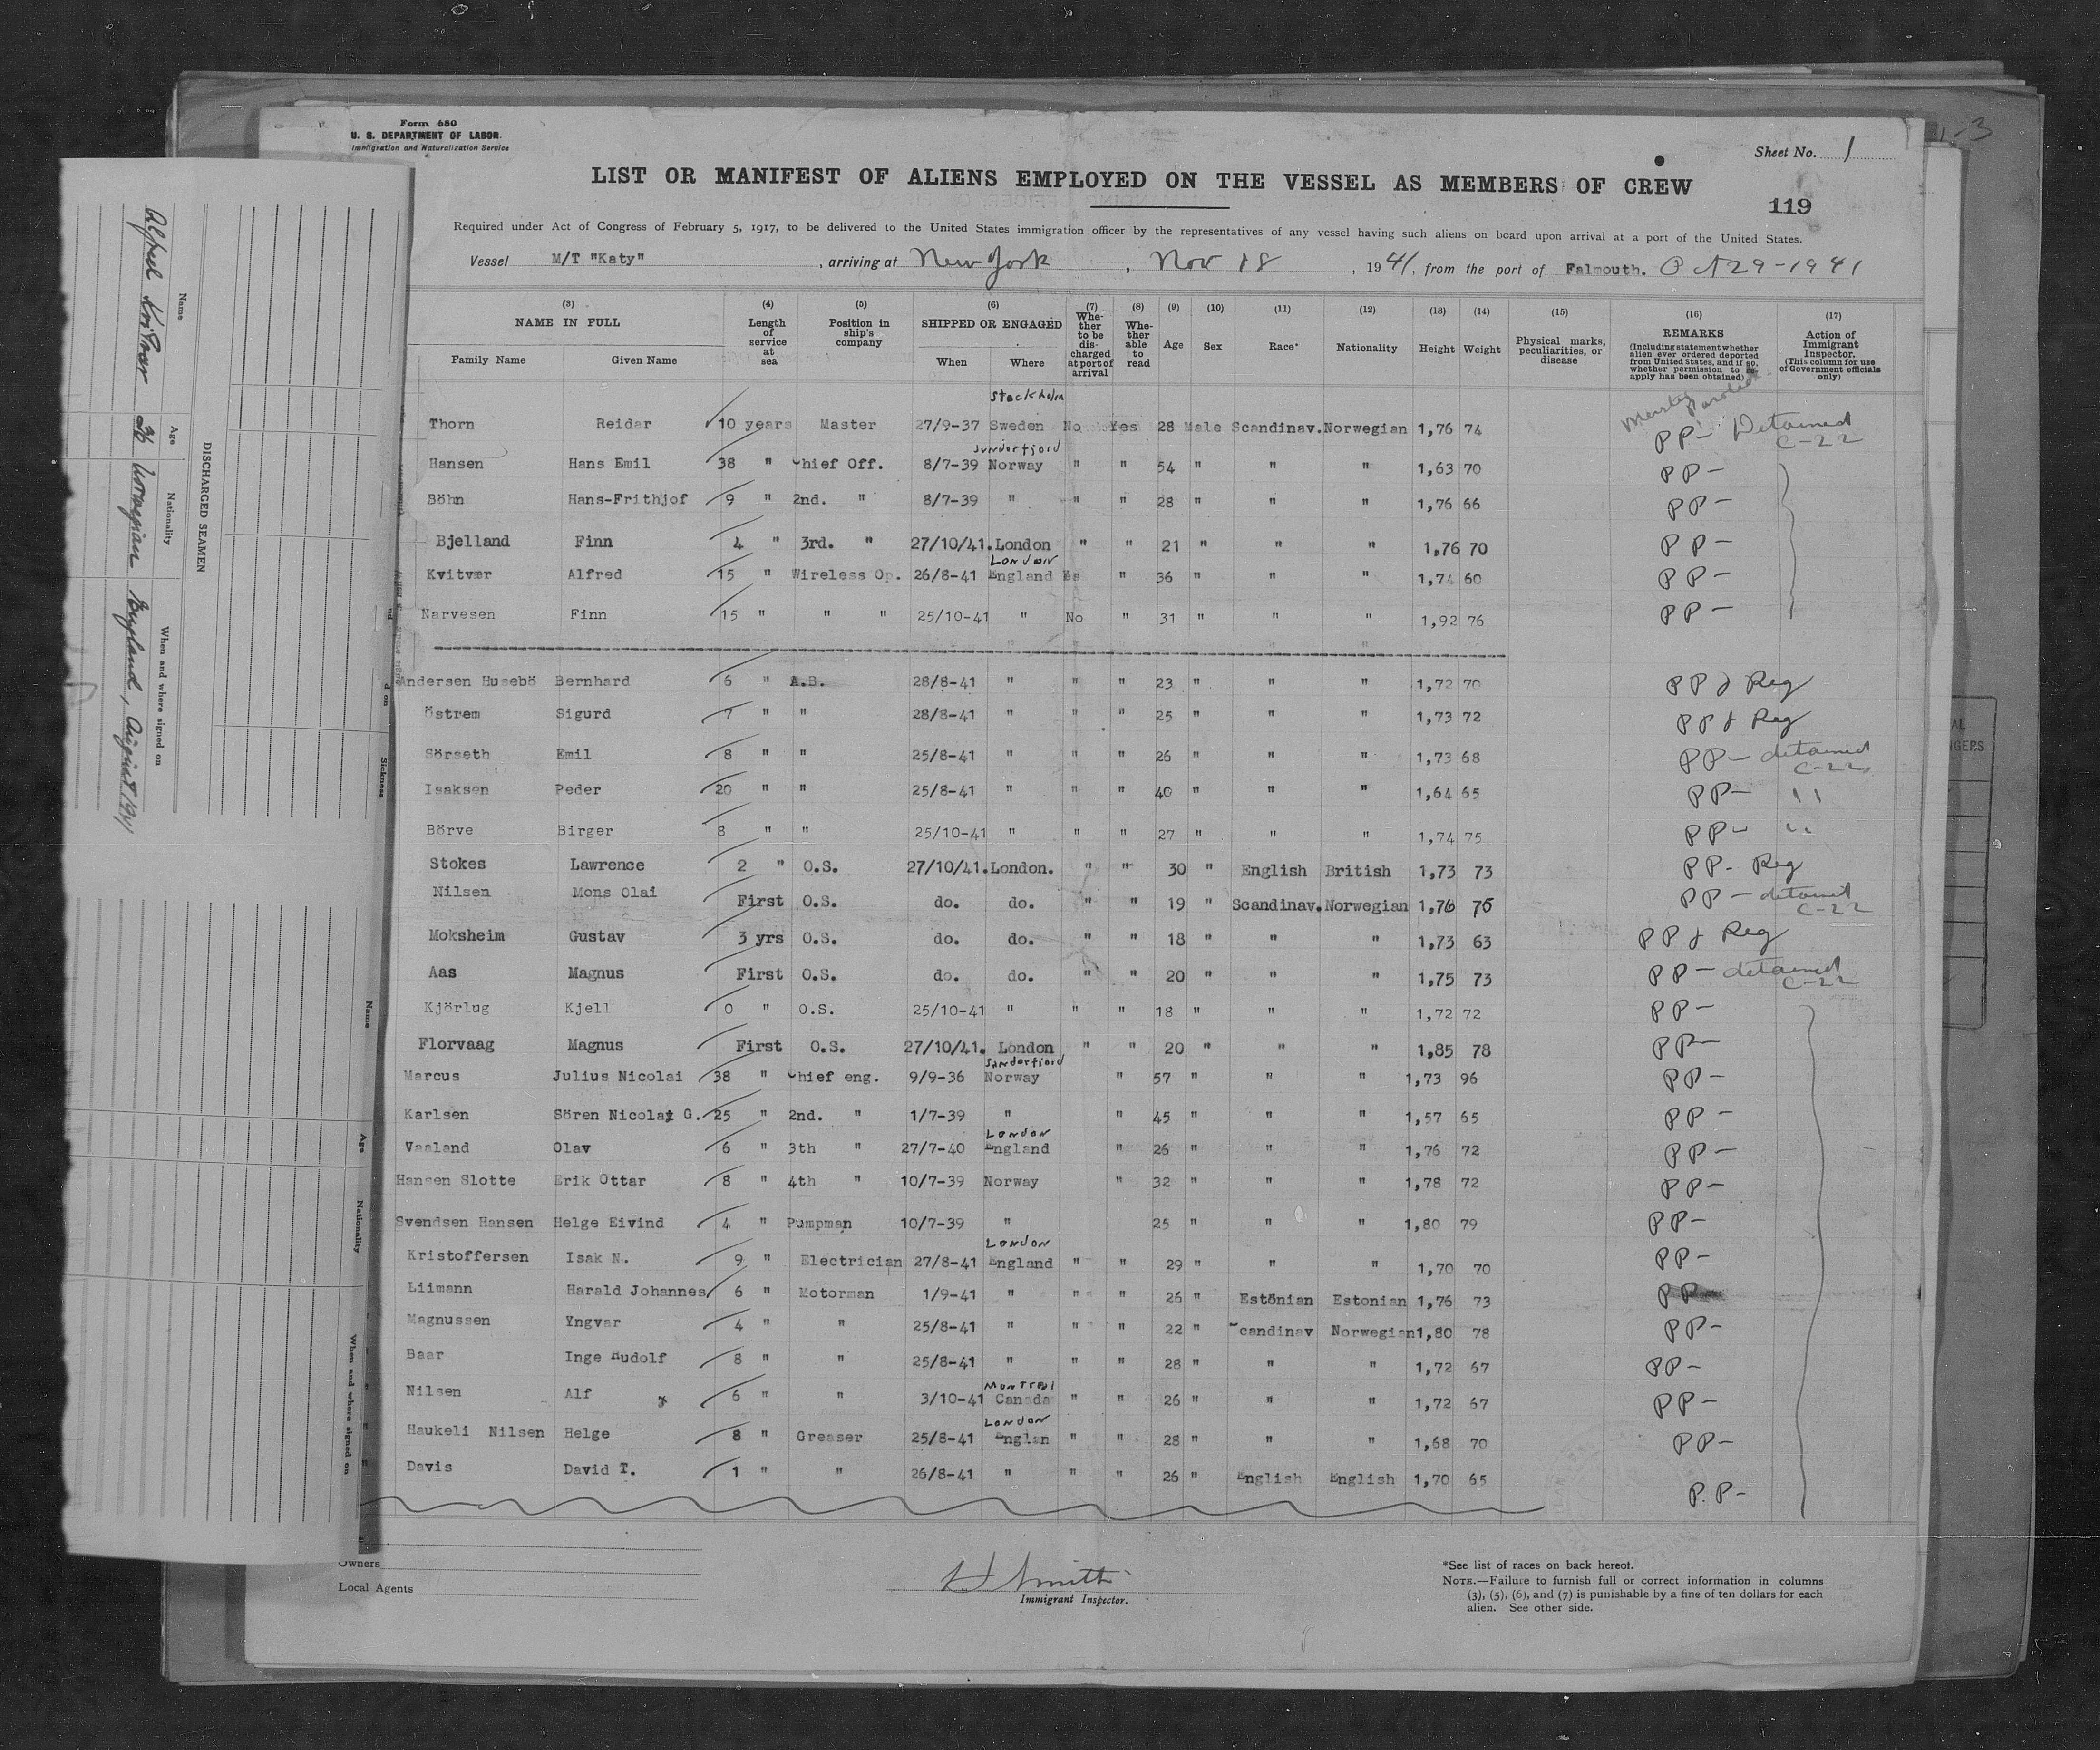 Form 680
U. S. DEPARTMENT OF LABOR
Immigration and Naturalization Service
Sheet No. 1
1-3
LIST OR MANIFEST OF ALIENS EMPLOYED ON THE VESSEL AS MEMBERS OF CREW
119
Required under Act of Congress of February 5, 1917, to be delivered to the United States immigration officer by the representatives of any vessel having such aliens on board upon arrival at a port of the United States.
Vessel M/T "Katy" , arriving at New York , Nov 18 , 1941, from the port of Falmouth. Oct 29-1941
(3) (4) (5) (6) (7) (8) (9) (10) (11) (12) (13) (14) (15) (16) (17)
NAME IN FULL Length of service at sea Position in ship's company SHIPPED OR ENGAGED Whether to be discharged at port of arrival Whether able to read Age Sex Race* Nationality Height Weight Physical marks, peculiarities, or disease REMARKS (Including statement whether alien ever ordered deported from United States, and if so, whether permission to re-apply has been obtained) Action of Immigrant Inspector. (This column for use of Government officials only)
Family Name Given Name When Where
Stockholm
Thorn Reidar 10 years Master 27/9-37 Sweden No Yes 28 Male Scandinav. Norwegian 1,76 74 PP- Detained C-22
Hansen Hans Emil 38 " Chief Off. 8/7-39 Norway " " 54 " " " 1,63 70 PP-
Böhn Hans-Frithjof 9 " 2nd. " 8/7-39 " " " 28 " " " 1,76 66 PP-
Bjelland Finn 4 " 3rd. " 27/10/41. London " " 21 " " " 1,76 70 PP-
London
Kvitvær Alfred 15 " Wireless Op. 26/8-41 England Yes " 36 " " " 1,74 60 PP-
Narvesen Finn 15 " " " 25/10-41 " No " 31 " " " 1,92 76 PP-
Andersen Husebö Bernhard 6 " A.B. 28/8-41 " " " 23 " " " 1,72 70 PP & Reg
Östrem Sigurd 7 " " 28/8-41 " " " 25 " " " 1,73 72 PP & Reg
Sörseth Emil 8 " " 25/8-41 " " " 26 " " " 1,73 68 PP- detained C-22
Isaksen Peder 20 " " 25/8-41 " " " 40 " " " 1,64 65 PP- "
Börve Birger 8 " " 25/10-41 " " " 27 " " " 1,74 75 PP- "
Stokes Lawrence 2 " O.S. 27/10/41. London. " " 30 " English British 1,73 73 PP- Reg
Nilsen Mons Olai First O.S. do. do. " " 19 " Scandinav. Norwegian 1,76 75 PP- detained C-22
Moksheim Gustav 3 yrs O.S. do. do. " " 18 " " " 1,73 63 PP & Reg
Aas Magnus First O.S. do. do. " " 20 " " " 1,75 73 PP- detained C-22
Kjörlug Kjell 0 " O.S. 25/10-41 " " " 18 " " " 1,72 72 PP-
Florvaag Magnus First O.S. 27/10/41. London " " 20 " " " 1,85 78 PP-
Sandefjord
Marcus Julius Nicolai 38 " Chief eng. 9/9-36 Norway " 57 " " " 1,73 96 PP-
Karlsen Sören Nicolai G. 25 " 2nd. " 1/7-39 " " 45 " " " 1,57 65 PP-
London
Vaaland Olav 6 " 3th " 27/7-40 England " 26 " " " 1,76 72 PP-
Hansen Slotte Erik Ottar 8 " 4th " 10/7-39 Norway " 32 " " " 1,78 72 PP-
Svendsen Hansen Helge Eivind 4 " Pumpman 10/7-39 " 25 " " " 1,80 79 PP-
London
Kristoffersen Isak N. 9 " Electrician 27/8-41 England " " 29 " " " 1,70 70 PP-
Liimann Harald Johannes 6 " Motorman 1/9-41 " " " 26 " Estönian Estonian 1,76 73 PP
Magnussen Yngvar 4 " " 25/8-41 " " " 22 " Scandinav Norwegian 1,80 78 PP-
Baar Inge Rudolf 8 " " 25/8-41 " " " 28 " " " 1,72 67 PP-
Montreal
Nilsen Alf x 6 " " 3/10-41 Canada " " 26 " " " 1,72 67 PP-
London
Haukeli Nilsen Helge 8 " Greaser 25/8-41 Englan " " 28 " " " 1,68 70 PP-
Davis David T. 1 " " 26/8-41 " " " 26 " English English 1,70 65 P.P-
Owners
Local Agents
Smith
Immigrant Inspector.
*See list of races on back hereof.
NOTE.—Failure to furnish full or correct information in columns
(3), (5), (6), and (7) is punishable by a fine of ten dollars for each
alien. See other side.
DISCHARGED SEAMEN
Name Age Nationality When and where signed on
Alfred Kvitvær 36 Norwegian England, August 1941
Sickness
Name Age Nationality When and where signed on